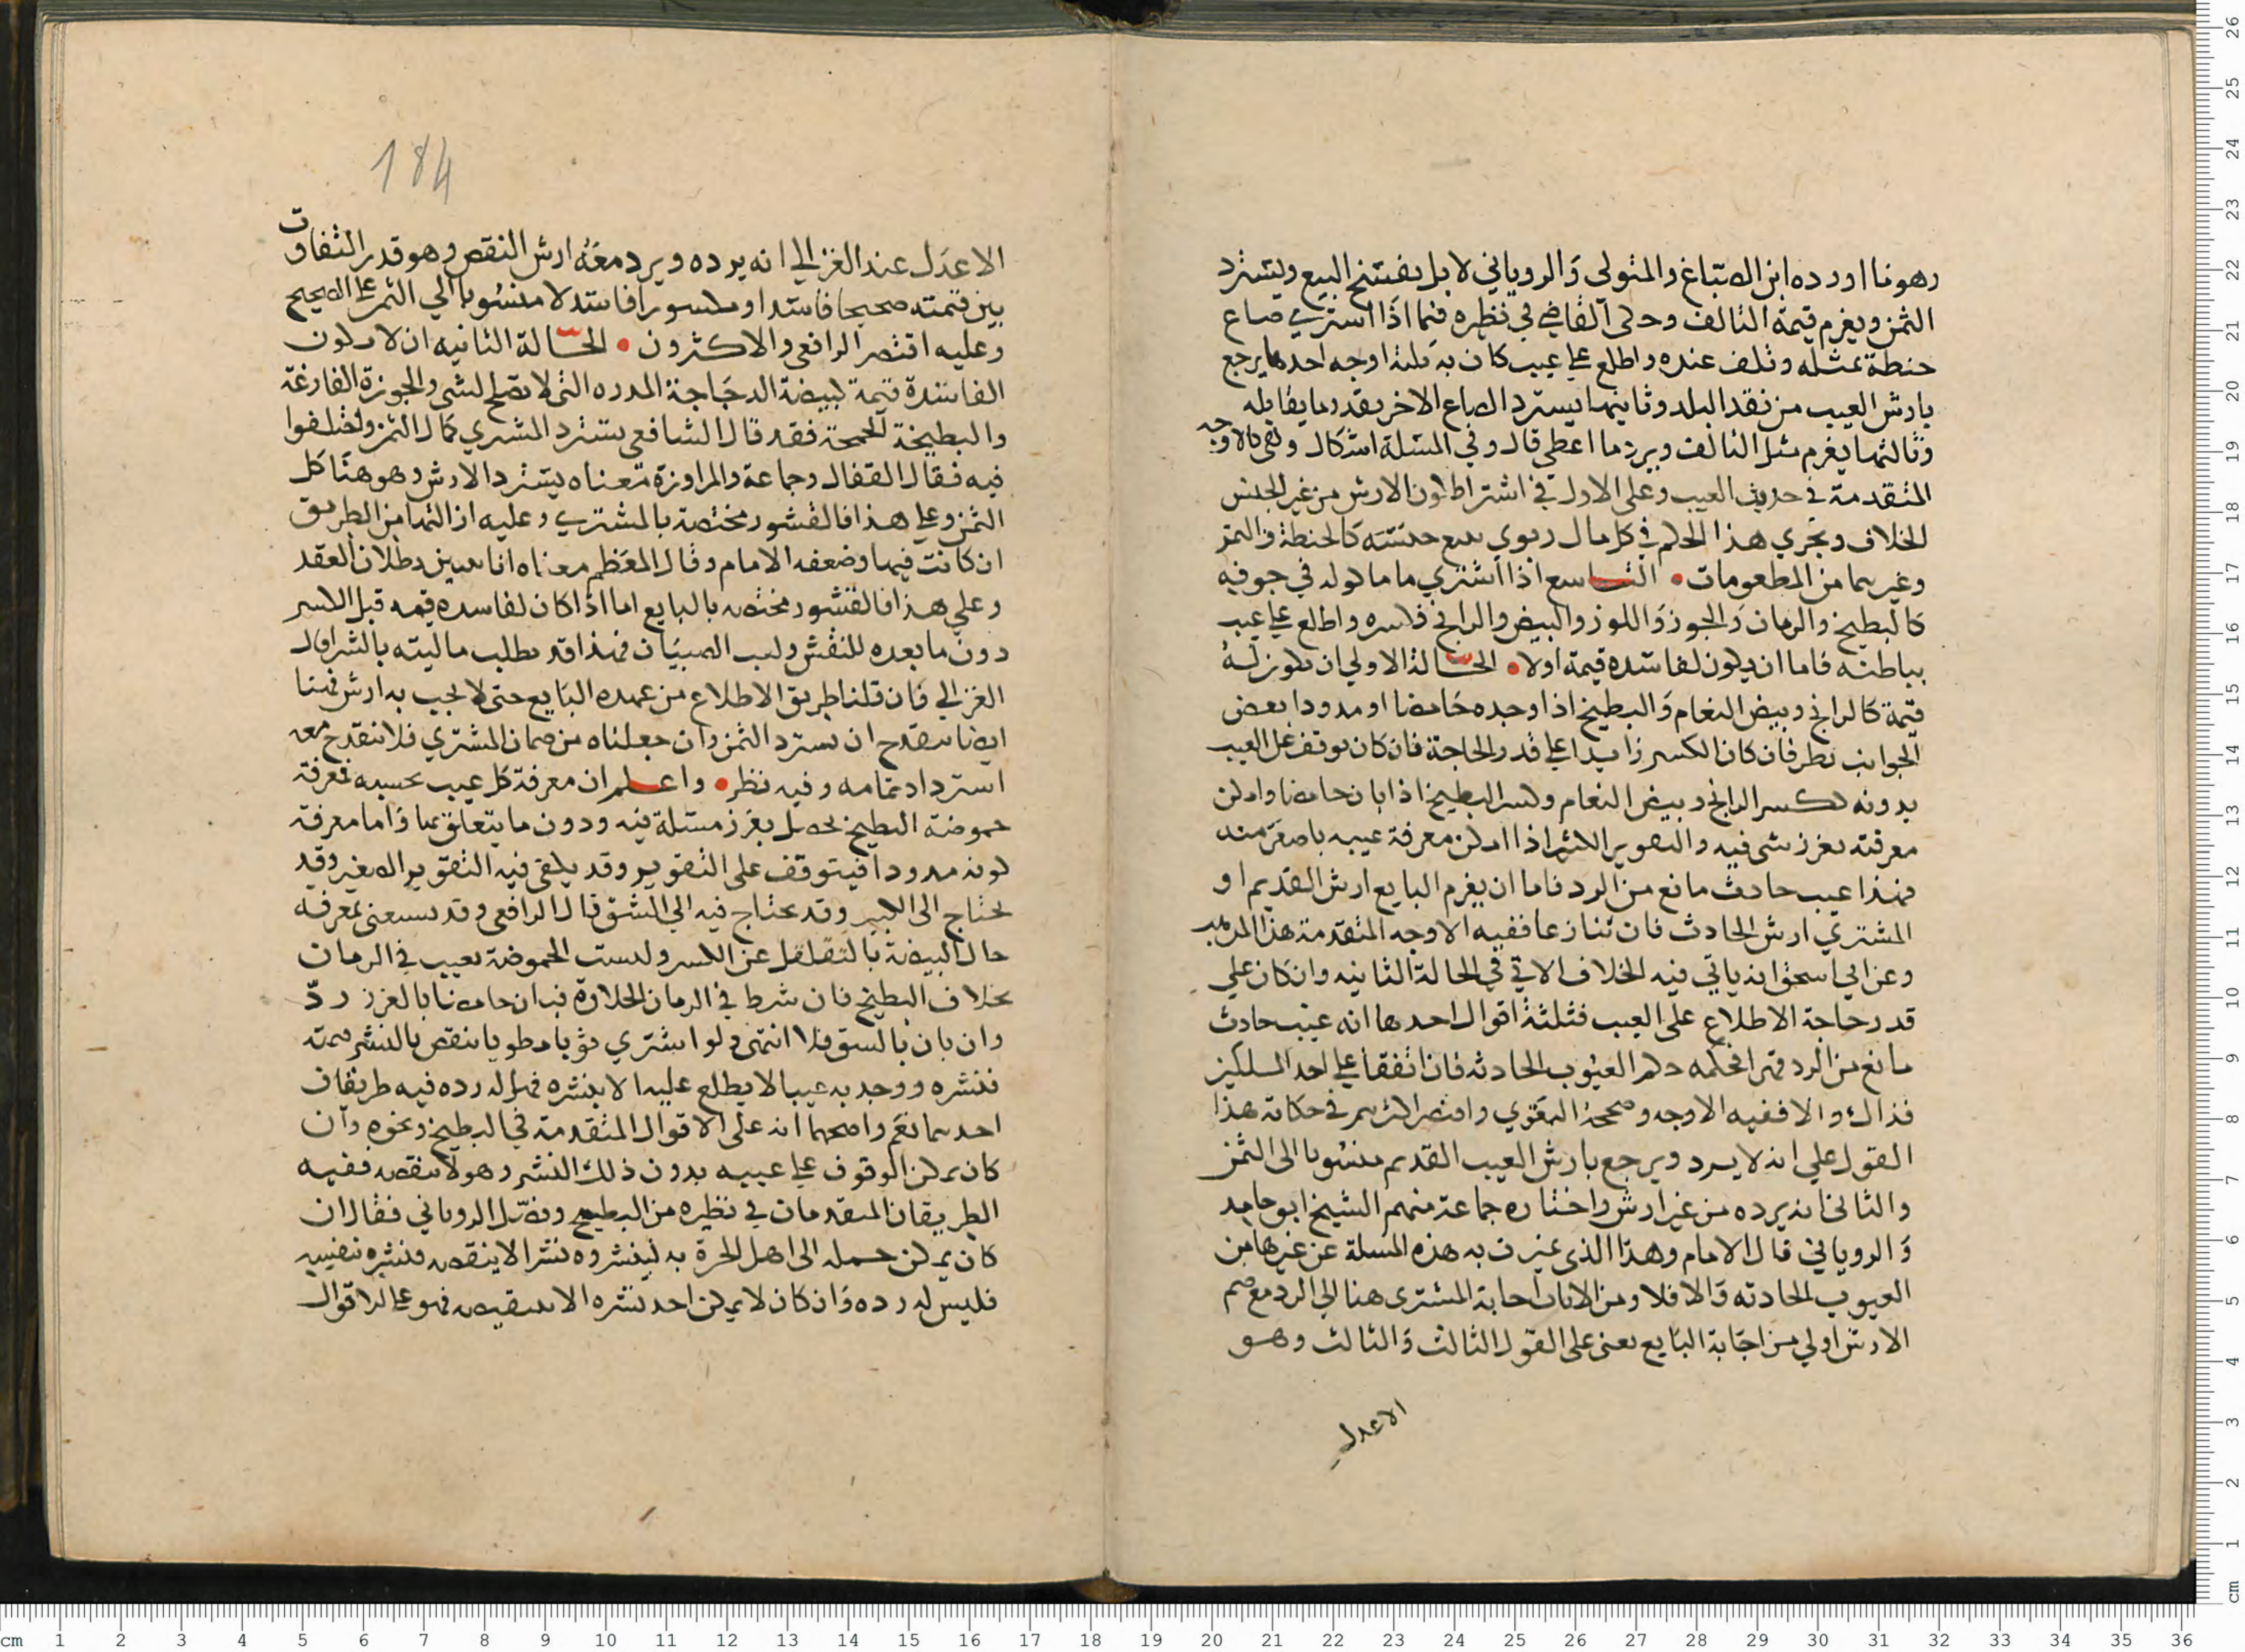 وهو ما اورده ابن الصباغ والمتولى والروياني لا بل يفسخ البيع ويسترد
الثمن ويغرم قيمة التالف وحكى القاضي في نظيره فيما اذا اشترى صاع
حنطة بمثله وتلف عنده واطلع على عيب كان به ثلثة اوجه احدها يرجع
بارش العيب من نقد البلد وثانيها يسترد الصاع الاخر بقدر ما يقابله
وثالثها يغرم مثل التالف ويرد ما اعطى قال وفي المسئلة اشكال وهي كالاوجه
المتقدمة في حدوث العيب وعلى الاول في اشتراط كون الارش من غير الجنس
الخلاف ويجري هذا الحكم في كل مال ربوي بيع بجنسه كالحنطة والتمر
وغيرهما من المطعومات • التاسع اذا اشترى ما ماكوله في جوفه
كالبطيخ والرمان والجوز واللوز والبيض والرانج فكسره واطلع على عيب
بباطنه فاما ان يكون لفاسده قيمة اولا • الحالة الاولي ان يكون له
قيمة كالرانج وبيض النعام والبطيخ اذا وجده حامضا او مدودا بعض
الجوانب نظر فان كان الكسر زايدا على قدر الحاجة فان كان يوقف على العيب
بدونه ككسر الرانج وبيض النعام وكسر البطيخ اذا بان حامضا وامكن
معرفته بغرز شي فيه والتقوير الكثير اذا امكن معرفة عيبه باصغر منه
فهذا عيب حادث مانع من الرد فاما ان يغرم البايع ارش القديم او
المشتري ارش الحادث فان تنازعا ففيه الاوجه المتقدمة هذا المذهب
وعن ابي اسحق انه ياتي فيه الخلاف الاتي في الحالة الثانيه وان كان على
قدر حاجة الاطلاع على العيب فثلثة اقوال احدها انه عيب حادث
مانع من الرد قهرا فحكمه حكم العيوب الحادثه فان اتفقا على احد المسلكين
فذاك والا ففيه الاوجه وصححه البغوي واقتصر اكثرهم في حكاية هذا
القول على انه لا يرد ويرجع بارش العيب القديم منسوبا الى الثمن
والثاني انه يرده من غير ارش واختاره جماعة منهم الشيخ ابو حامد
والروياني قال الامام وهذا الذي تميزت به هذه المسلة عن غيرها من
العيوب الحادثه والا فلا ومن الاثبات اجابة المشترى هنا الي الرد مع ضم
الارش اولي من اجابة البايع يعنى على القول الثالث والثالث وهو
الاعدل
184
الاعدل عند الغزالي انه يرده ويرد معه ارش النقص وهو قدر التفاوت
بين قيمته صحيحا فاسدا ومكسورا فاسدا لا منسوبا الي الثمن على الصحيح
وعليه اقتصر الرافعي والاكثرون • الحالة الثانيه ان لا يكون
الفاسدة قيمة كبيضة الدجاجة المدره التي لا تصلح لشي والجوزة الفارغة
والبطيخة الحمجة فقد قال الشافعي يسترد المشري كمال الثمن واختلفوا
فيه فقال القفال وجماعة والمراوزة معناه يسترد الارش وهو هنا كل
الثمن وعلى هذا فالقشور مختصة بالمشتري وعليه ازالتها من الطريق
ان كانت فيها وضعفه الامام وقال المعظم معناه انا نتبين بطلان العقد
وعلي هذا فالقشور مختصه بالبايع اما اذا كان لفاسده قيمه قبل الكسر
دون ما بعده للنقش ولعب الصبيان فهذا قد بطلب ماليته بالشراء قال
الغزالي فان قلنا طريق الاطلاع من عهده البايع حتى لا يجب به ارش فهنا
ايضا ينقدح ان يسترد الثمن وان جعلناه من ضمان المشتري فلا ينقدح معه
استرداد تمامه وفيه نظر • واعلم ان معرفة كل عيب بحسبه فمعرفة
حموضة البطيخ يحصل بغرز مسلة فيه ودون ما يتعلق بها واما معرفة
كونه مدودا فيتوقف على التقوير وقد يكفى فيه التقوير الصغير وقد
يحتاج الى الكبير وقد يحتاج فيه الي الشق قال الرافعي وقد يستغنى بمعرفة
حال البيضة بالتقلقل عن الكسر وليست الحموضة بعيب في الرمان
بخلاف البطيخ فان شرط في الرمان الحلاوة فبان حامضا بالغرز رد
وان بان بالشق فلا انتهى ولو اشتري ثوبا مطويا ينقص بالنشر قيمته
فنشره ووجد به عيبا لا يطلع عليه الا بنشره فهل له رده فيه طريقان
احدهما نعم واصحهما انه على الاقوال المتقدمة في البطيخ ونحوه وان
كان يمكن الوقوف على عيبه بدون ذلك النشر وهو لا ينقصه ففيه
الطريقان المتقدمان في نظيره من البطيخ وفصل الروياني فقال ان
كان يمكن حمله الى اهل الخبرة به لينشروه نشرا لا ينقصه فنشره بنفسه
فليس له رده وان كان لا يمكن احد نشره الا بنقصه فهو على الاقوال